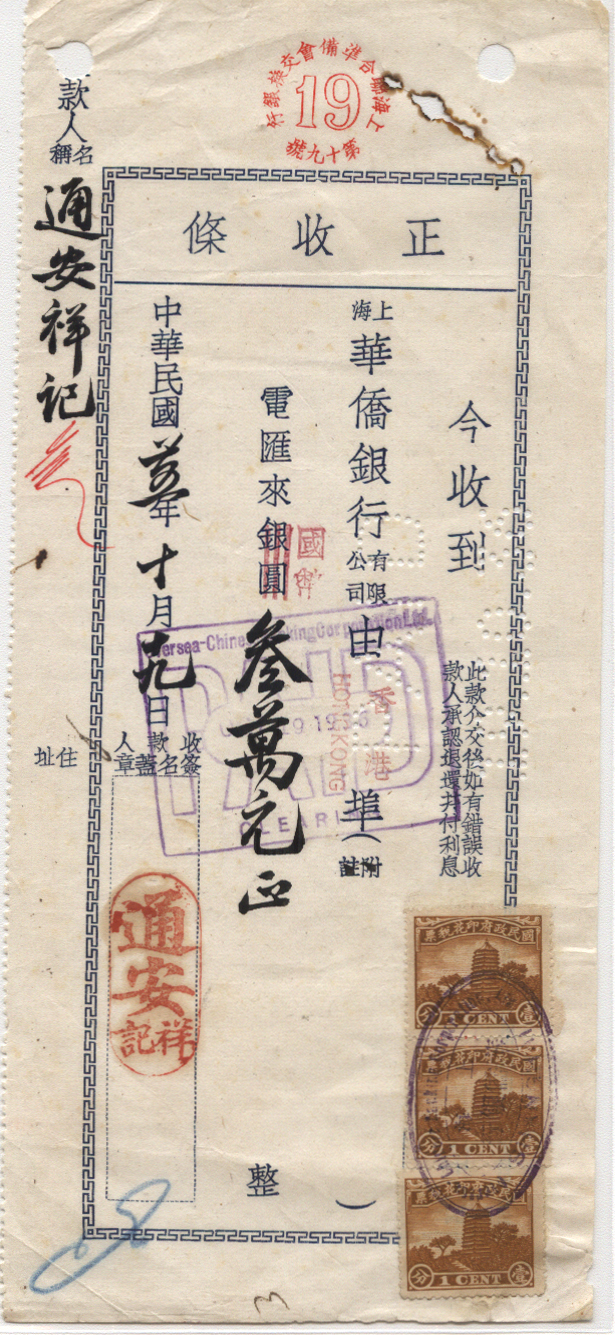 上海聯合準備會交換銀行
19
第十九號
正收條
今收到
上海華僑銀行有限公司由香港埠（附註
HONGKONG
）
電匯來銀圓叁萬元正
國幣
整
中華民國廿五年十月廿九日
收款人簽名蓋章
通安祥記
此款介交後如有錯誤收
款人承認退還并付利息
款人名稱
通安祥記
住址
Oversea-Chinese Banking Corporation Ltd.
PAID
29 1936
CLEARING
國民政府印花稅票
壹分
1 CENT
國民政府印花稅票
壹分
1 CENT
國民政府印花稅票
壹分
1 CENT
3